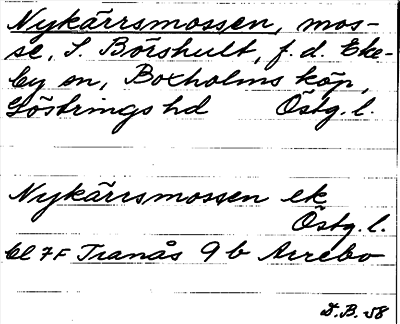 Nykärrsmossen, mos-
se, S. Börshult, f. d. Eke-
by sn, Boxholms köp,
Göstrings hd Östg. l.
Nykärrsmossen ek
Östg. l.
bl 7F Tranås 9 b Arrebo
D.B. 58